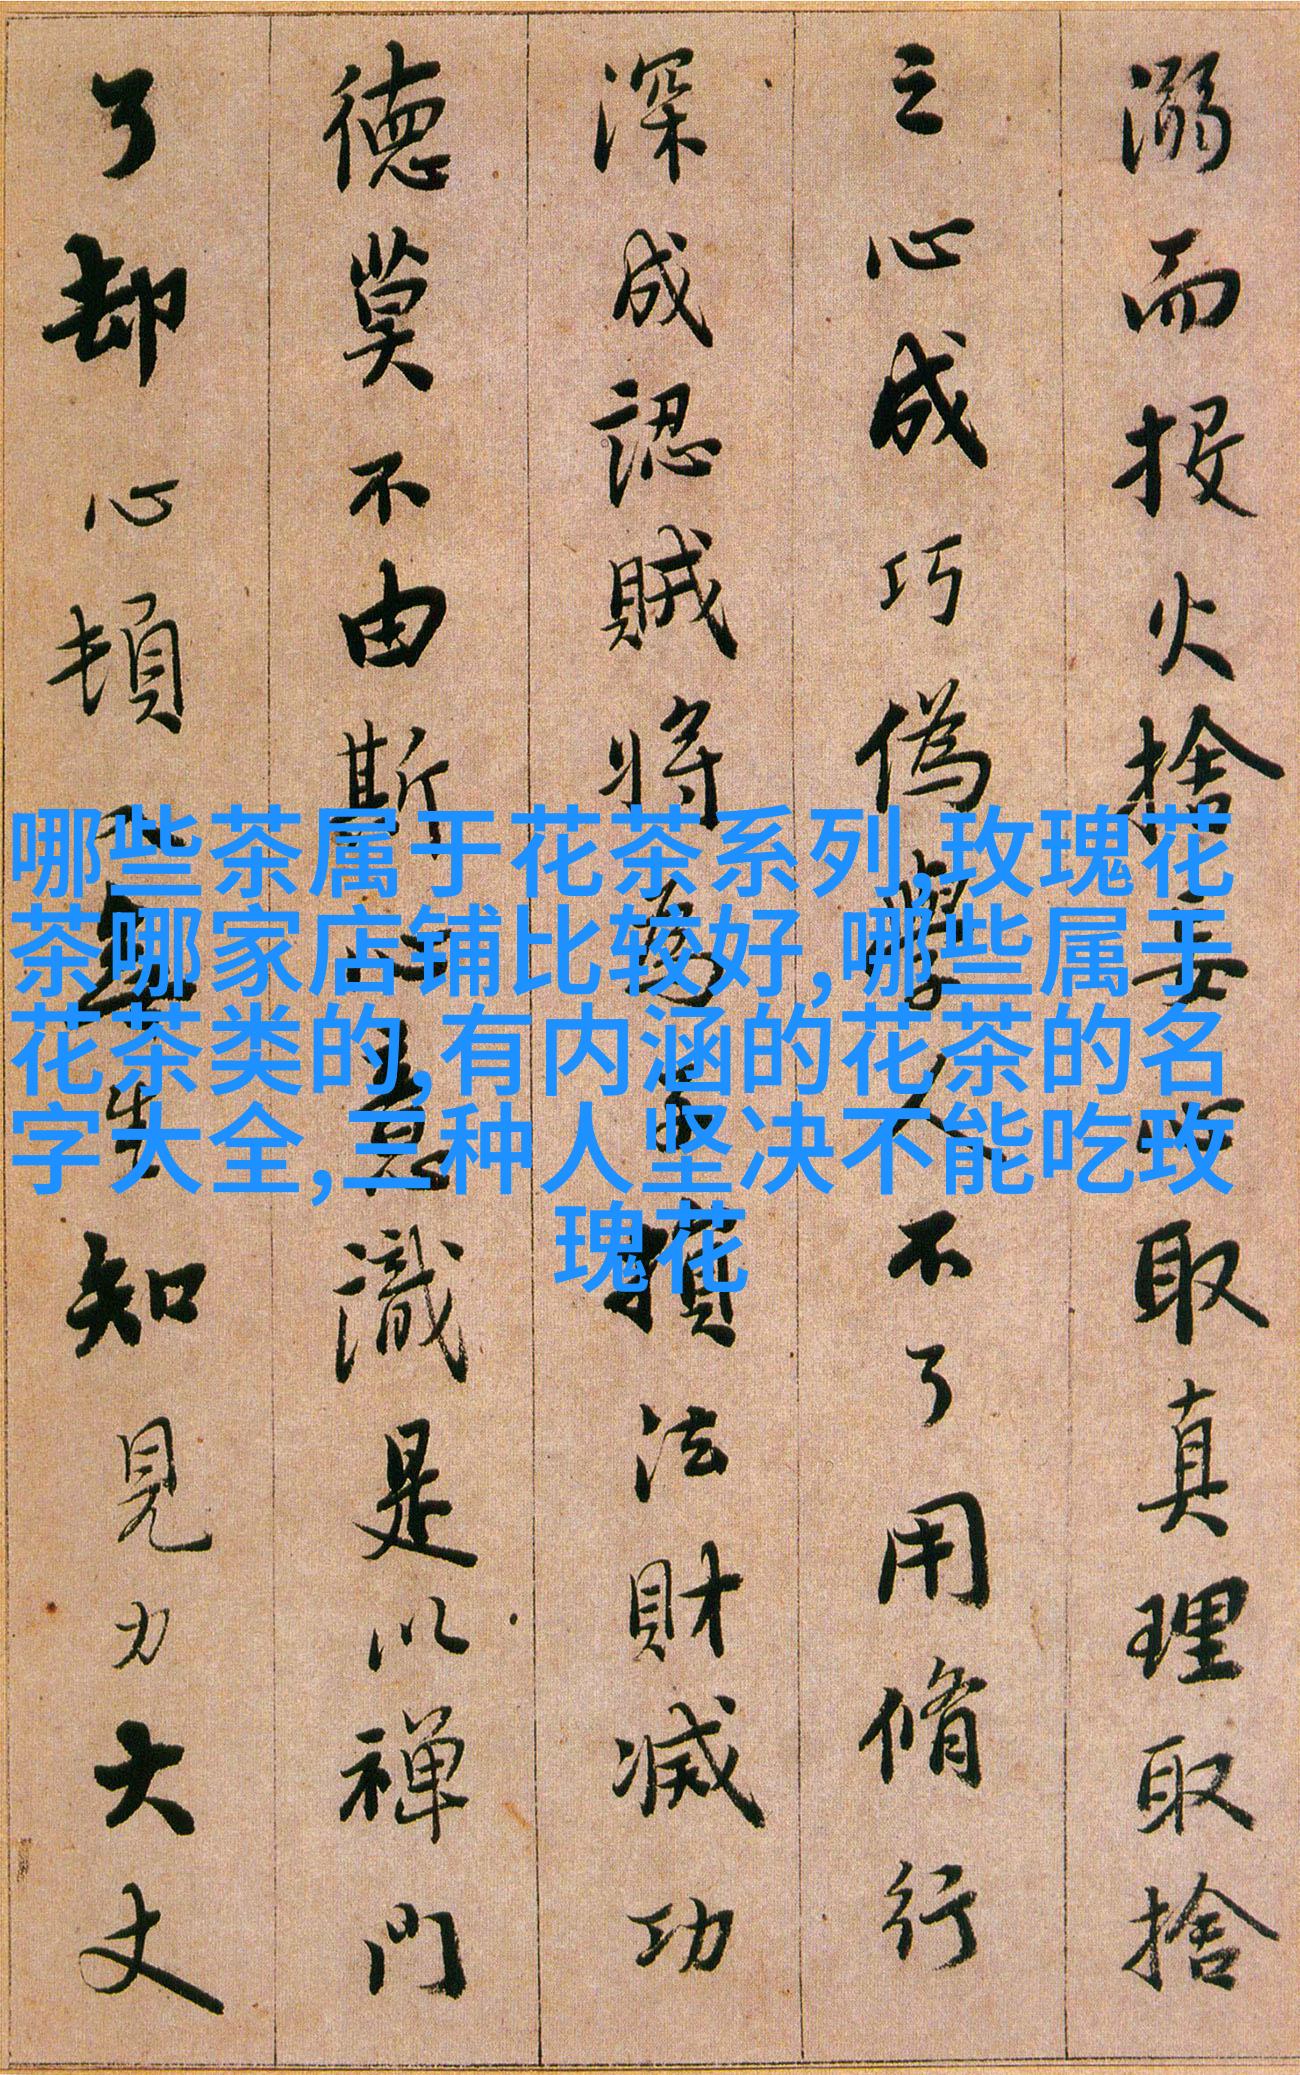 溺而投火捨妄心取真理取捨
之心成巧偽學人不了用脩行
深成認賊將為子損法財滅功
德莫不由斯心意識是以禪門
了却心頓入無生知見力大丈
哪些茶属于花茶系列,玫瑰花
茶哪家店铺比较好,哪些属于
花茶类的,有内涵的花茶的名
字大全,三种人坚决不能吃玫
瑰花